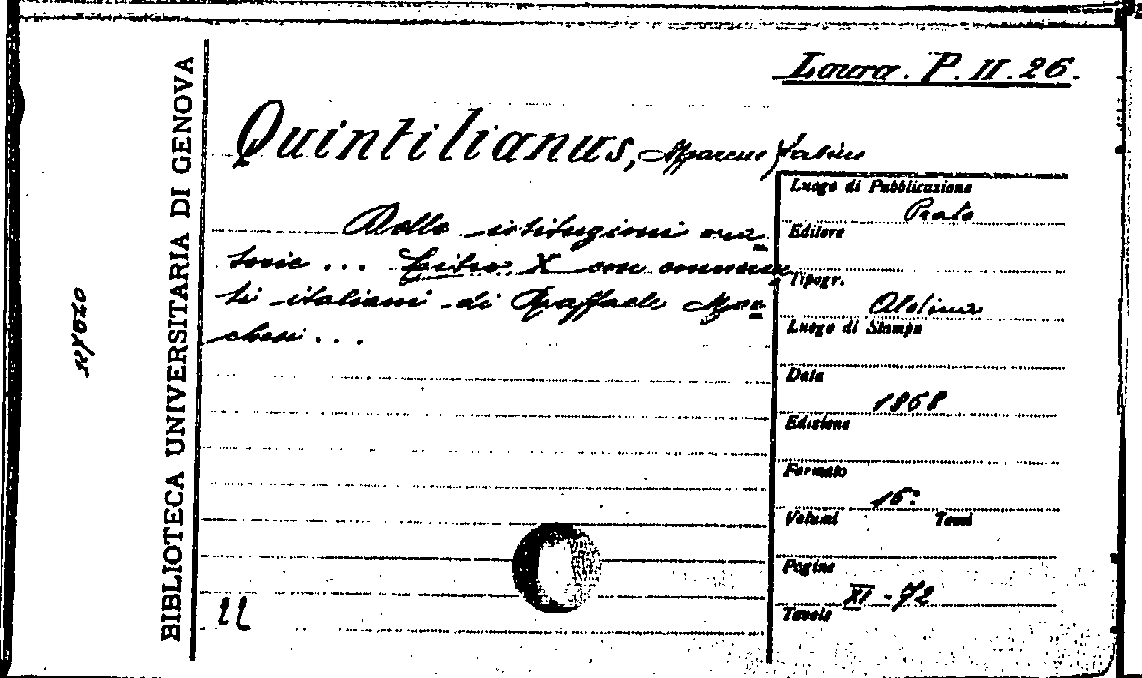 Laura. P. II. 26.
BIBLIOTECA UNIVERSITARIA DI GENOVA
Quintilianus, Marcus Fabius
Delle istituzioni ora-
torie ... Libro X con commen-
ti italiani di Raffaele Mar-
chesi ...
Luogo di Pubblicazione
Prato
Editore
Tipogr.
Aldina
Luogo di Stampa
Data
1868
Edizione
Formato
16°
Volumi Tomi
Pagine
XI - 72
Tavole